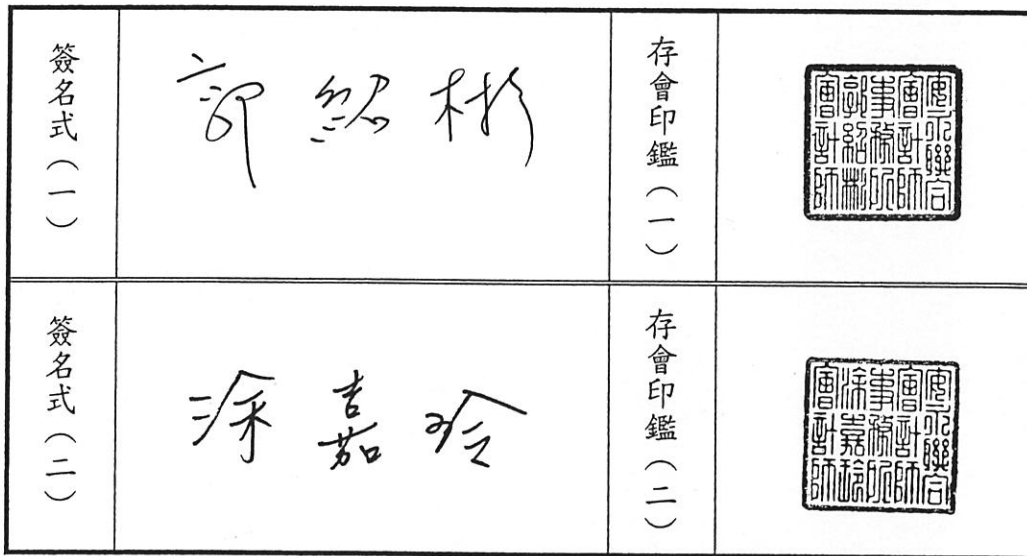 簽名式（一）
郭紹彬
存會印鑑（一）
安永聯合會計師事務所郭紹彬會計師
簽名式（二）
涂嘉玲
存會印鑑（二）
安永聯合會計師事務所涂嘉玲會計師